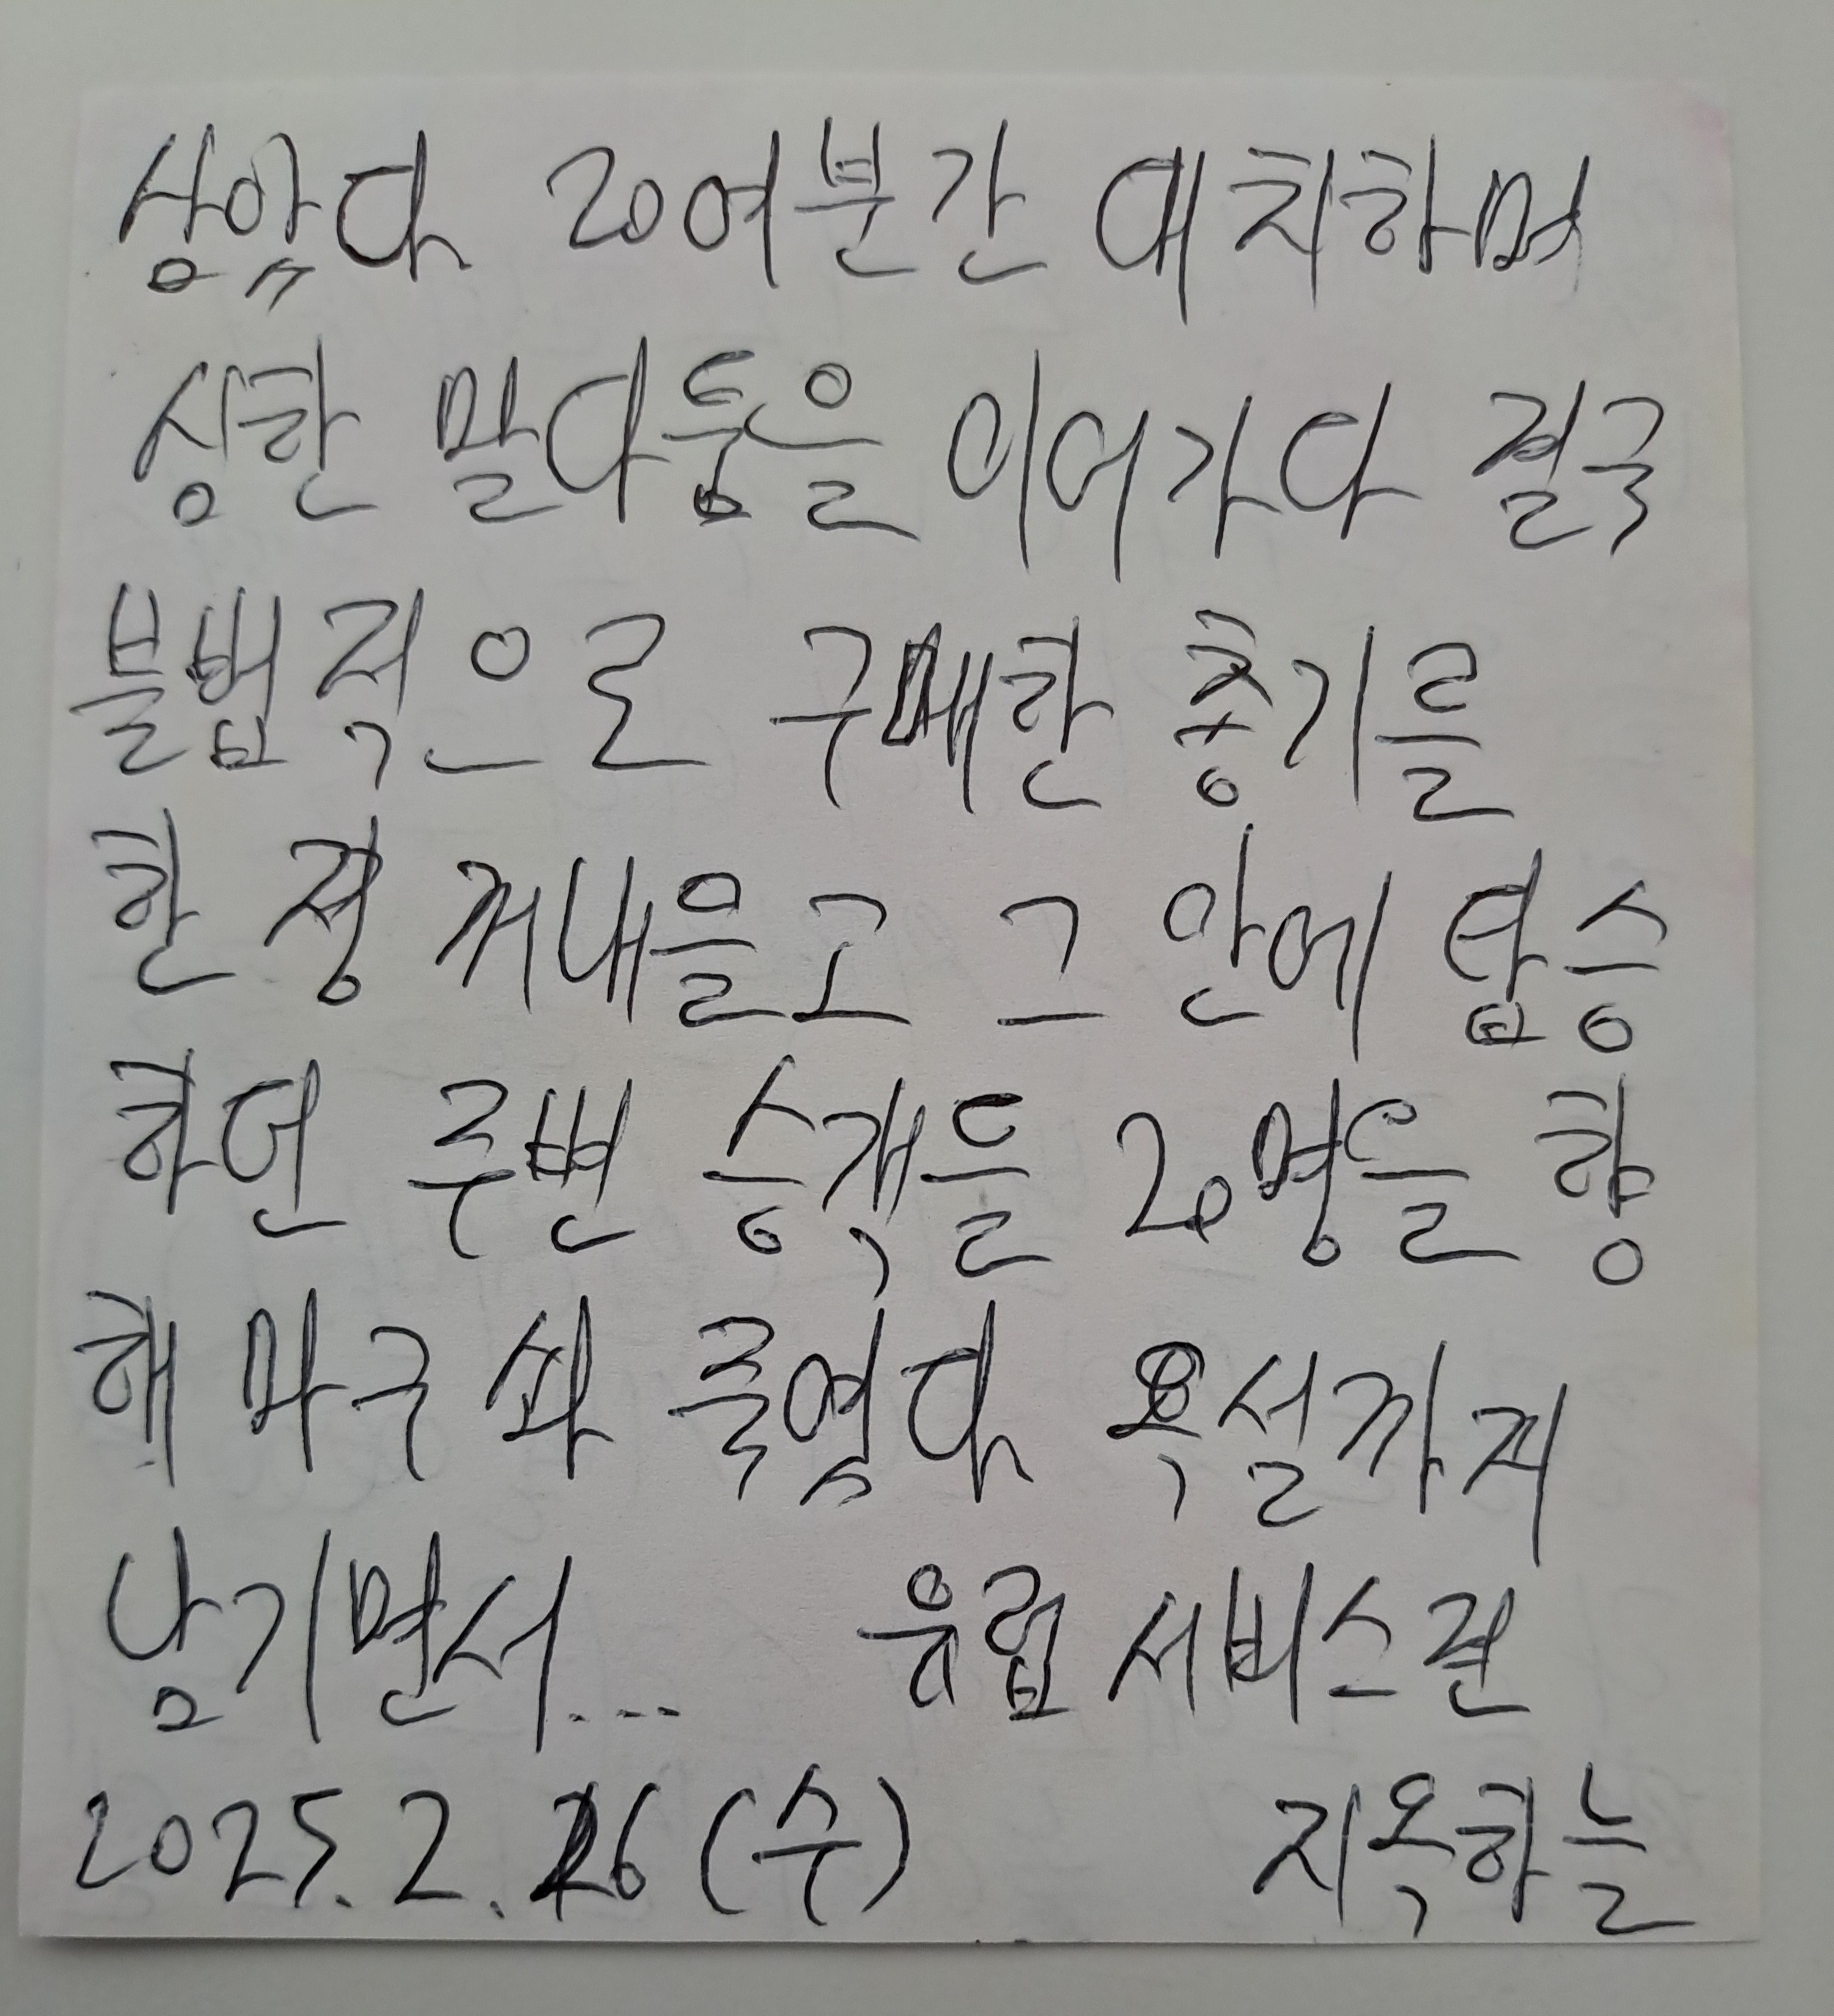 삼았다 20여분간 대치하며
심한 말다툼을 이어가다 결국
불법적으로 구매한 총기를
한 정 꺼내들고 그 안에 탑승
하던 주변 승객들 20명을 향
해 마구 쏴 죽였다 욕설까지
남기면서... 유럽 서비스관
2025. 2. 26 (수) 지옥하늘